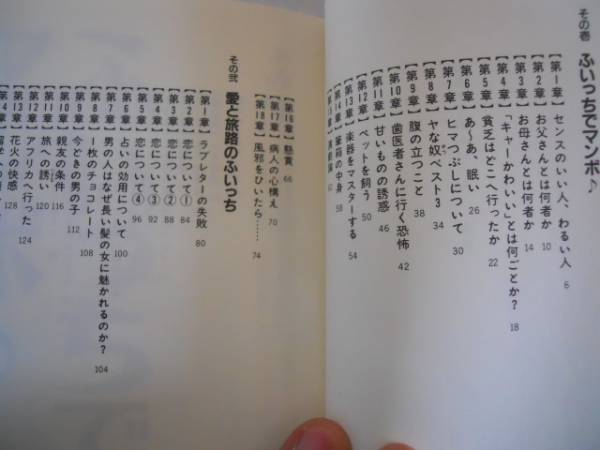 その壱 ふいっちでマンボ♪
【第1章】 センスのいい人、わるい人 6
【第2章】 お父さんとは何者か 10
【第3章】 お母さんとは何者か 14
【第4章】 「キャーかわいい」とは何ごとか? 18
【第5章】 貧乏はどこへ行ったか 22
【第6章】 あ〜あ、眠い 26
【第7章】 ヒマつぶしについて 30
【第8章】 ヤな奴ベスト3 34
【第9章】 腹の立つこと 38
【第10章】 歯医者さんに行く恐怖 42
【第11章】 甘いものの誘惑 46
【第12章】 ペットを飼う 50
【第13章】 楽器をマスターする 54
【第14章】 筆箱の中身 58
【第15章】 62
【第16章】 懸賞 66
【第17章】 病人の心構え 70
【第18章】 風邪をひいたら…… 74
その弐 愛と旅路のふいっち
【第1章】 ラブレターの失敗 80
【第2章】 恋について① 84
【第3章】 恋について② 88
【第4章】 恋について③ 92
【第5章】 恋について④ 96
【第6章】 占いの効用について 100
【第7章】 男の人はなぜ長い髪の女に魅かれるのか? 104
【第8章】 1枚のチョコレート 108
【第9章】 今どきの男の子 112
【第10章】 親友の条件 116
【第11章】 旅への誘い 120
【第12章】 アフリカへ行った 124
【第13章】 花火の快感 128